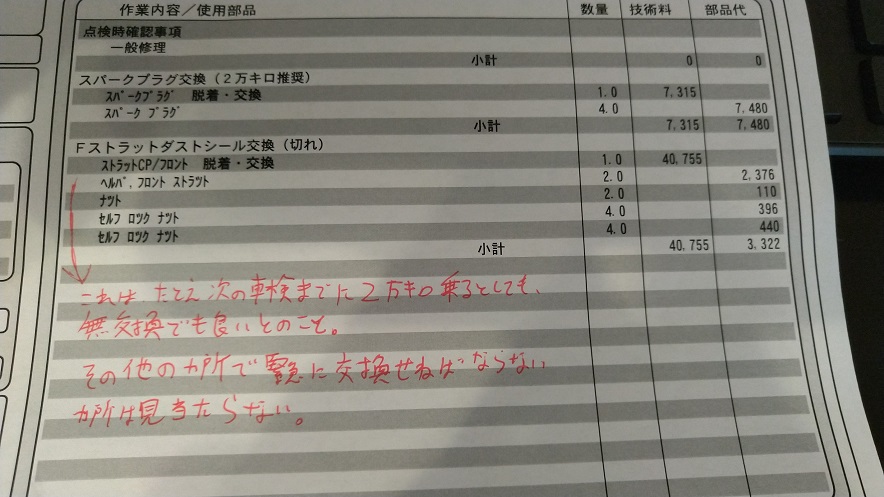 作業内容／使用部品 数量 技術料 部品代
点検時確認事項
一般修理
小計 0 0
スパークプラグ交換（２万キロ推奨）
ｽﾊﾟｰｸﾌﾟﾗｸﾞ 脱着・交換 1.0 7,315
ｽﾊﾟｰｸ ﾌﾟﾗｸﾞ 4.0 7,480
小計 7,315 7,480
Ｆストラットダストシール交換（切れ）
ｽﾄﾗｯﾄCP/ﾌﾛﾝﾄ 脱着・交換 1.0 40,755
ﾍﾙﾊﾟ,ﾌﾛﾝﾄ ｽﾄﾗﾂﾄ 2.0 2,376
ﾅﾂﾄ 2.0 110
ｾﾙﾌ ﾛﾂｸ ﾅﾂﾄ 4.0 396
ｾﾙﾌ ﾛﾂｸ ﾅﾂﾄ 4.0 440
小計 40,755 3,322
これは、たとえ次の車検までに２万キロ乗るとしても、
無交換でも良いとのこと。
その他のカ所で緊急に交換せねばならない
カ所は見当たらない。